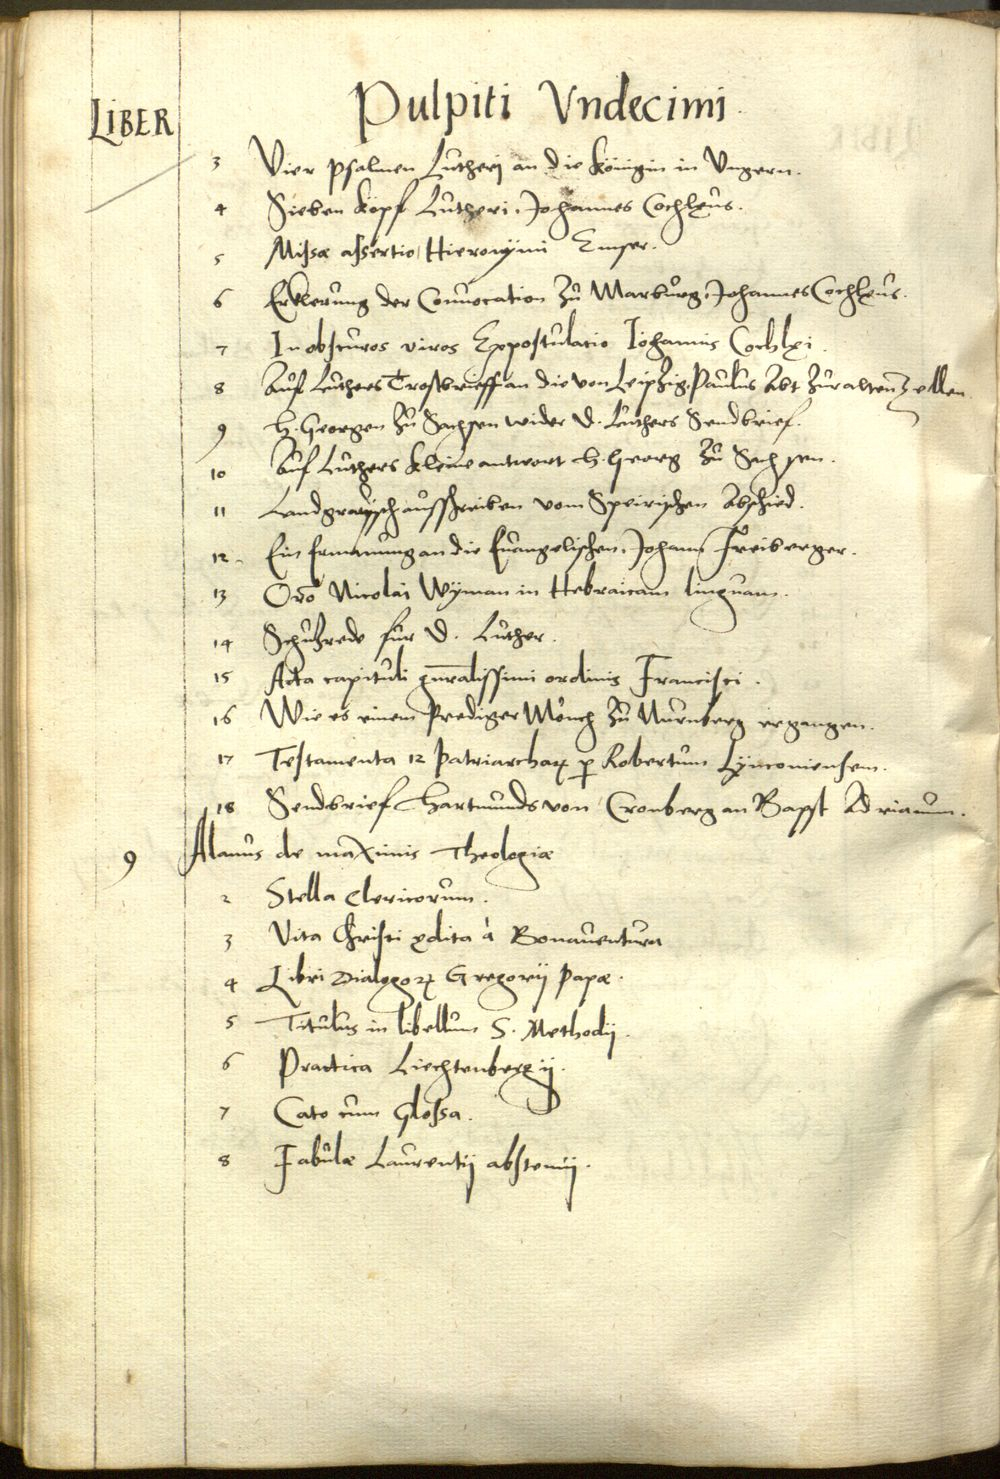 LIBER
Pulpiti Vndecimi.
3 Vier psalmen Lutherj an die Königin in Vngern.
4 Sieben Köpf Lutheri. Johannes Cochlęus.
5 Missæ assertio Hieronymi Emser.
6 Erklerung der Conuocation zu Marburg. Johannes Cochlęus.
7 In obscuros viros Expostulatio Iohannis Cochlęi.
8 Auf Luthers Trostbrieff an die von Leipzig. Paulus Abt zur alten Zellen
9 H. Georgen zu Sachsen wider D. Luthers Sendbrief.
10 Auf Luthers kleine antwort H. Georg zu Sachsen.
11 Landgravisch ausschreiben vom Speirischen Abschied.
12 Ein Ermanung an die Euangelischen. Johann Freiberger.
13 Orō Nicolai Wyman in Hebraicam linguam.
14 Schutzrede für D. Luther.
15 Acta capituli gn̄ralissimi ordinis Francisci.
16 Wie es einem Prediger Mönch zu Nurnberg ergangen.
17 Testamenta 12 Patriarchaꝝ ꝑ Robertum Lynconiensem.
18 Sendbrief Hartmunds von Cronberg an Bapst Adrianum.
9 Alanus de maximis Theologiæ
2 Stella Clericorum.
3 Vita Christi ędita à Bonauentura
4 Libri Dialogoꝝ Gregorij Papæ.
5 Titulus in libellum S. Methodij.
6 Practica Liechtenbergij.
7 Cato cum Glossa.
8 Fabulæ Laurentij abstemij.